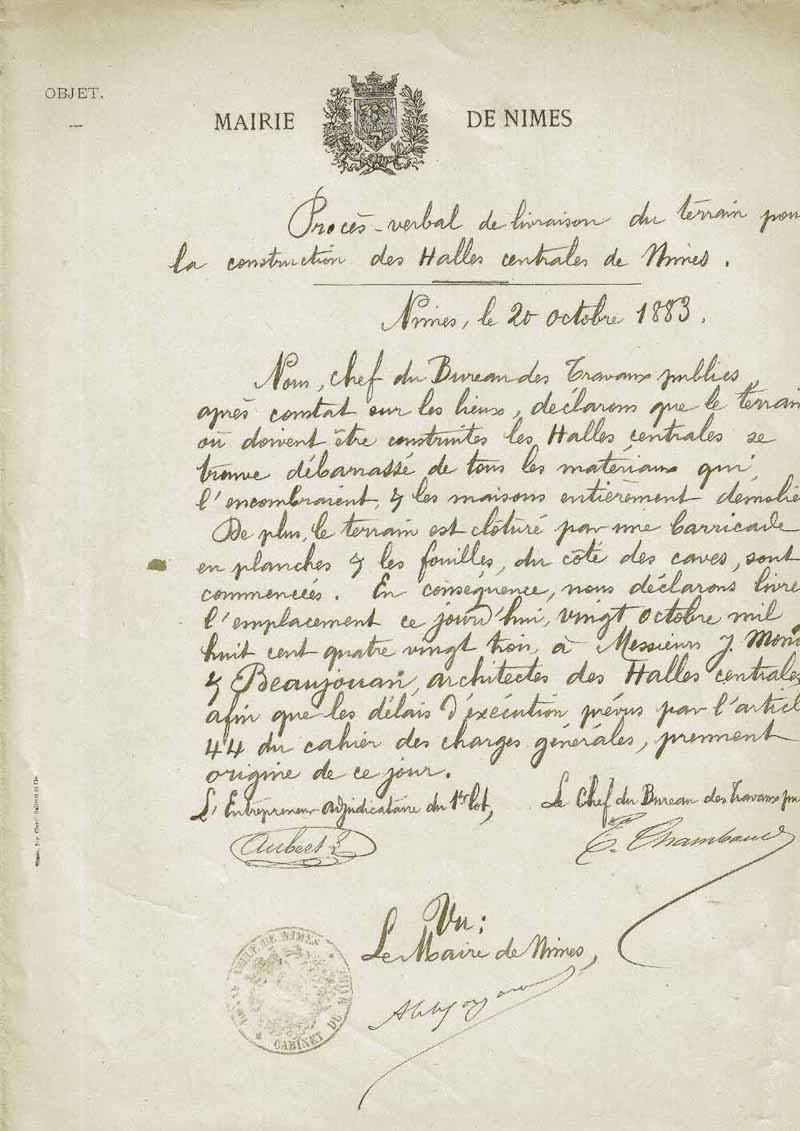 OBJET.
MAIRIE DE NIMES
Procès-verbal de livraison du terrain pour
la construction des Halles centrales de Nimes.
Nimes, le 20 octobre 1883.
Nous, chef du Bureau des Travaux publics
après constat sur les lieux, déclarons que le terrain
où doivent être construites les Halles centrales se
trouve débarrassé de tous les matériaux qui
l'encombraient, & les maisons entièrement démolie
De plus, le terrain est clôturé par une barricade
en planches & les fouilles, du côté des caves, sont
commencées. En conséquence, nous déclarons livre
l'emplacement ce jourd'hui, vingt octobre mil
huit cent quatre vingt trois, à Messieurs J. Mon
& Beaujouan, architectes des Halles centrales
afin que les délais d'exécution prévus par l'articl
44 du cahier des charges générales, prennent
origine de ce jour.
L'Entrepreneur adjudicataire du 1er lot, Le Chef du Bureau des Travaux pu
Aubert E. Chambaud
Vu:
Le Maire de Nimes,
VILLE DE NIMES
CABINET DU MAIRE